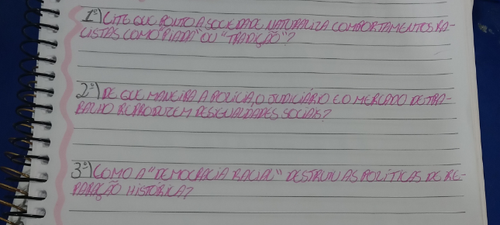 1º) CITE QUE PONTO A SOCIEDADE NATURALIZA COMPORTAMENTOS RA-
CISTAS COMO "PIADA" OU "TRADIÇÃO"?
2º) DE QUE MANEIRA A POLICIA, O JUDICIÁRIO E O MERCADO DE TRA-
BALHO REPRODUZEM DESIGUALDADES SOCIAIS?
3º) COMO A "DEMOCRACIA RACIAL" DESTRUIU AS POLÍTICAS DE RE-
PARAÇÃO HISTÓRICA?